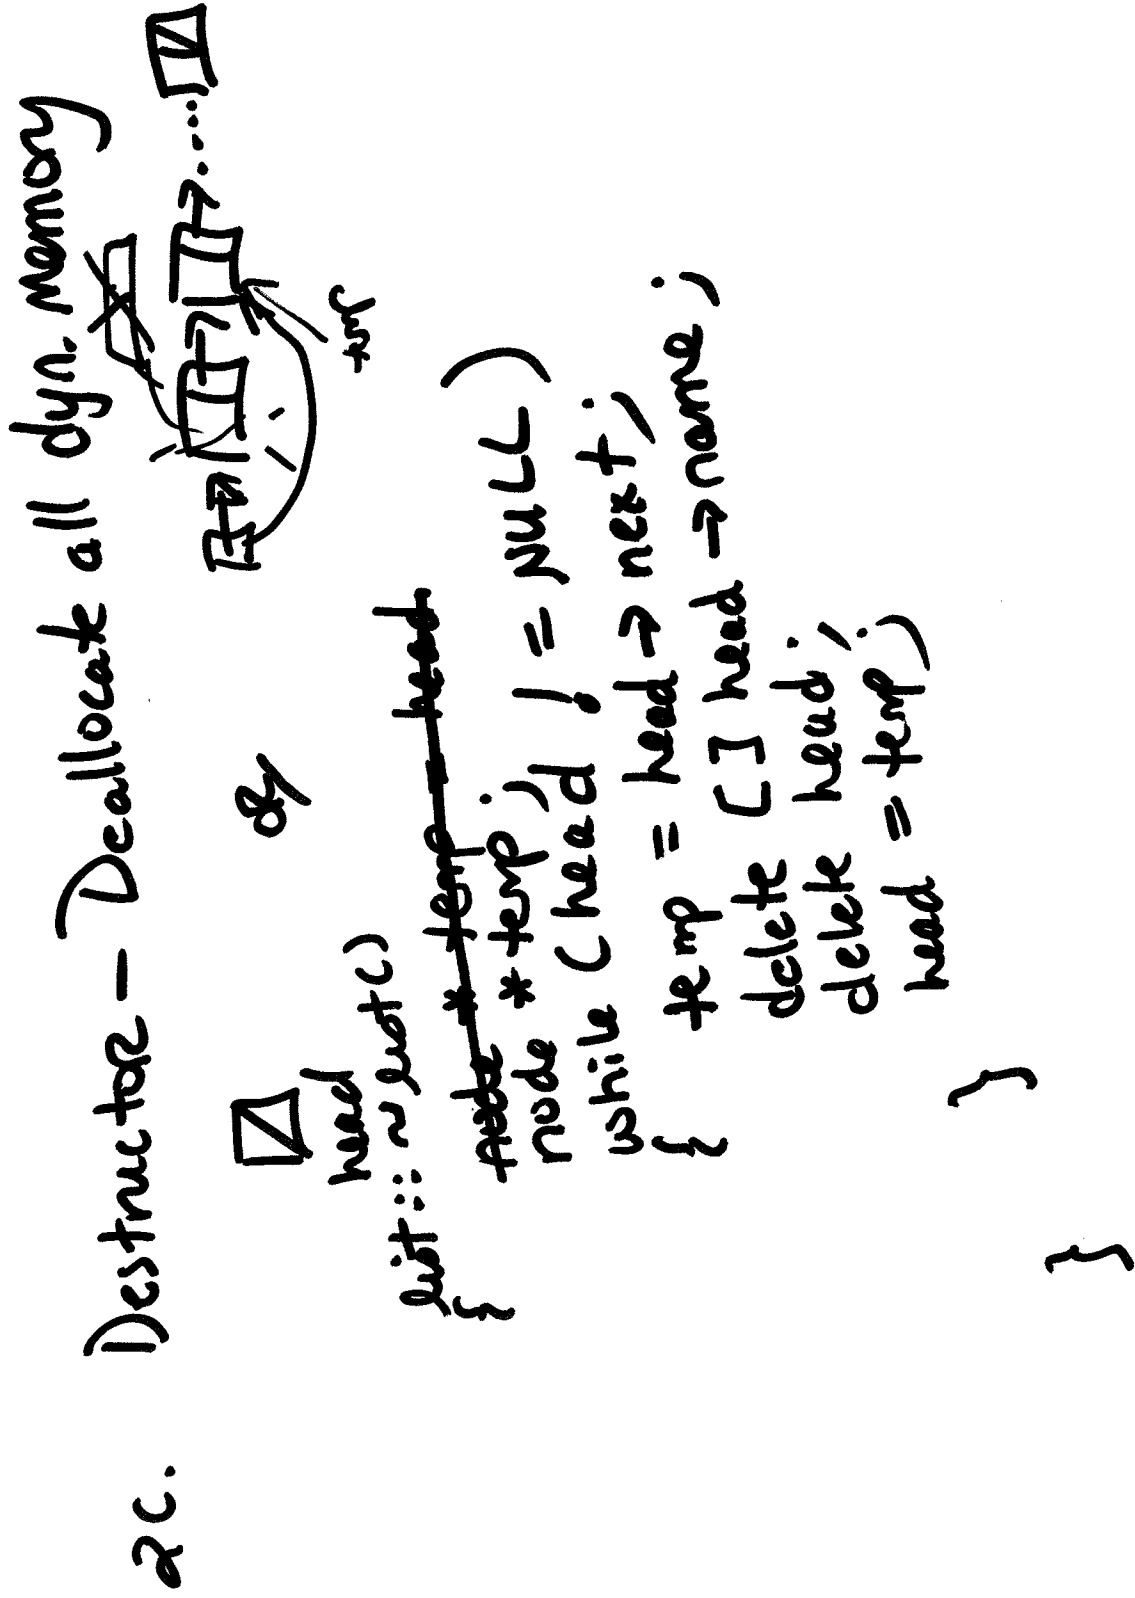 2c. Destructor - Deallocate all dyn. memory
head
list::~list()
{
node *temp = head
node *temp;
while (head != NULL)
{
temp = head → next;
delete [] head → name;
delete head;
head = temp;
}
}